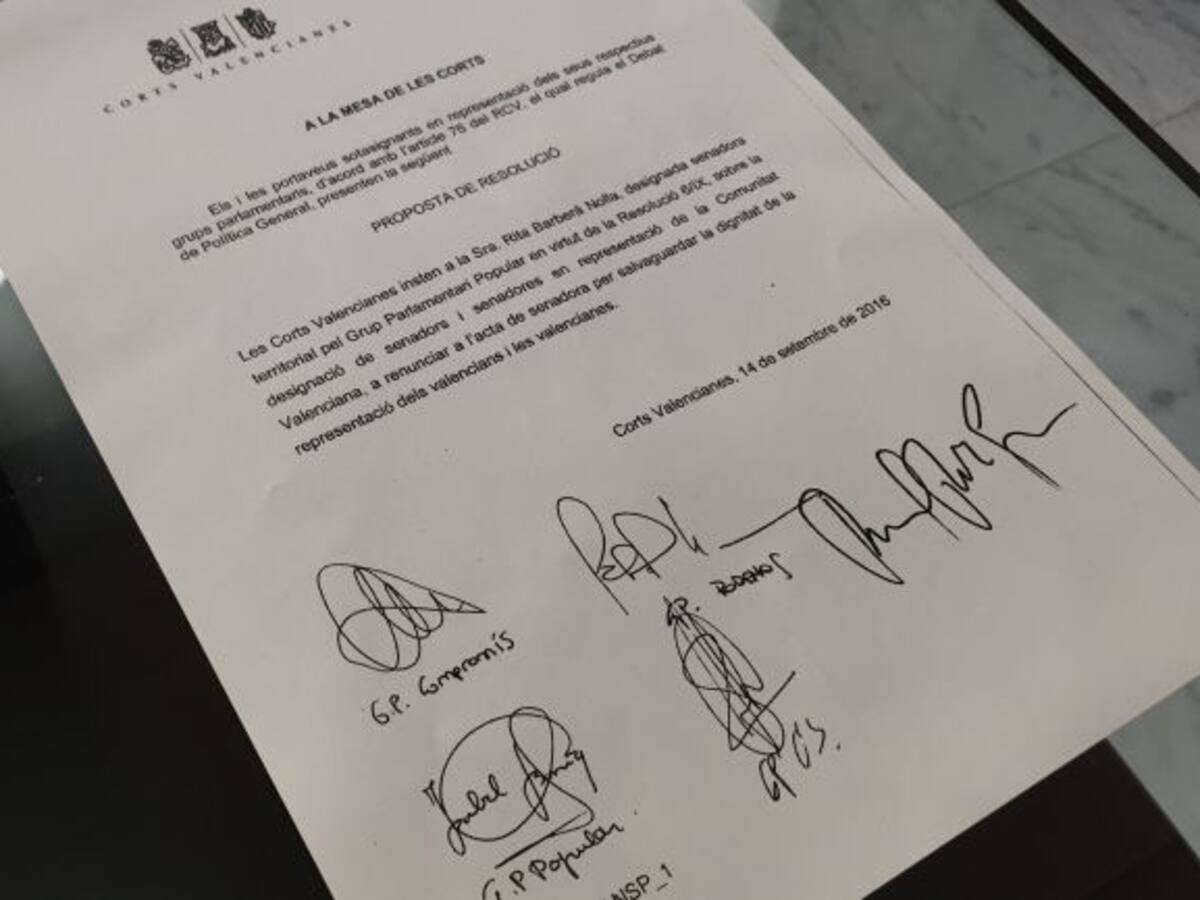 CORTS VALENCIANES
A LA MESA DE LES CORTS
Els i les portaveus sotasignants en representació dels seus respectius
grups parlamentaris, d'acord amb l'article 76 del RCV, el qual regula el Debat
de Política General, presenten la següent
PROPOSTA DE RESOLUCIÓ
Les Corts Valencianes insten a la Sra. Rita Barberà Nolla, designada senadora
territorial pel Grup Parlamentari Popular en virtut de la Resolució 6/IX, sobre la
designació de senadors i senadores en representació de la Comunitat
Valenciana, a renunciar a l'acta de senadora per salvaguardar la dignitat de la
representació dels valencians i les valencianes.
Corts Valencianes, 14 de setembre de 2016
G.P. Compromís
GP. PODEMOS
GP C's.
Isabel Bonig
G.P Popular.